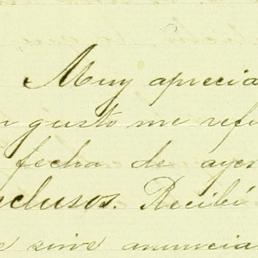 Muy aprecia
n gusto me refi
fecha de aye
clusos. Recibí
e sirve anuncia